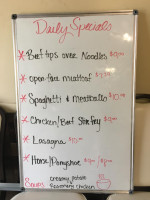 Daily Specials
* Beef tips over Noodles
* open-face meatloaf
* Spaghetti & meatballs $10.00
* Chicken/Beef Stir fry
* Lasagna
* Horse/Ponyshoe
Soups creamy potato
Rosemary chicken